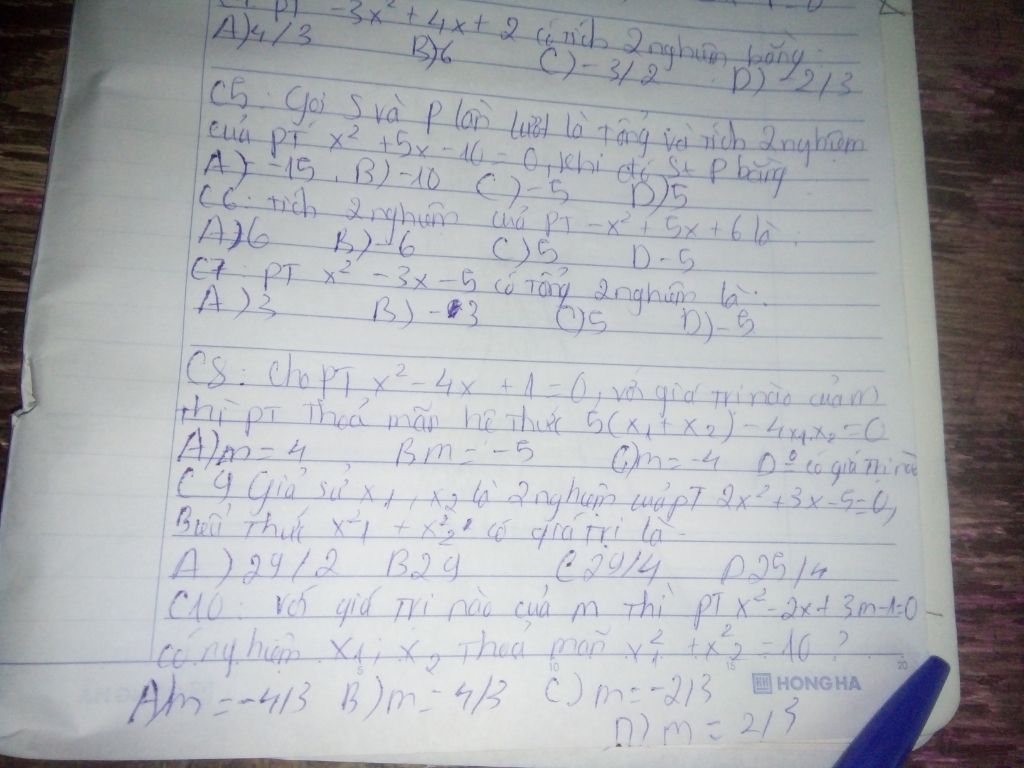 PT -3x² + 4x + 2 có tích 2 nghiệm bằng:
A) 4/3 B) 6 C) -3/2 D) -2/3
C5: Gọi S và P lần lượt là tổng và tích 2 nghiệm
của PT x² + 5x - 10 = 0, khi đó S + P bằng
A) -15 B) -10 C) -5 D) 5
C6: tích 2 nghiệm của PT -x² + 5x + 6 là:
A) 6 B) -6 C) 5 D -5
C7: PT x² - 3x - 5 có tổng 2 nghiệm là:
A) 3 B) -3 C) 5 D) -5
C8: Cho PT x² - 4x + 1 = 0, với giá trị nào của m
thì PT thoả mãn hệ thức 5(x₁ + x₂) - 4x₁.x₂ = 0
A) m = 4 B m = -5 C) m = -4 D có giá trị nào
C9 Giả sử x₁, x₂ là 2 nghiệm của PT 2x² + 3x - 5 = 0,
Biểu thức x²₁ + x²₂ có giá trị là
A) 29/2 B 29 C 29/4 D 25/4
C10: Với giá trị nào của m thì PT x² - 2x + 3m - 1 = 0
có nghiệm x₁; x₂ thoả mãn x²₁ + x²₂ = 10?
5 10 15 20
HONG HA
A) m = -4/3 B) m = 4/3 C) m = -2/3
D) m = 2/3